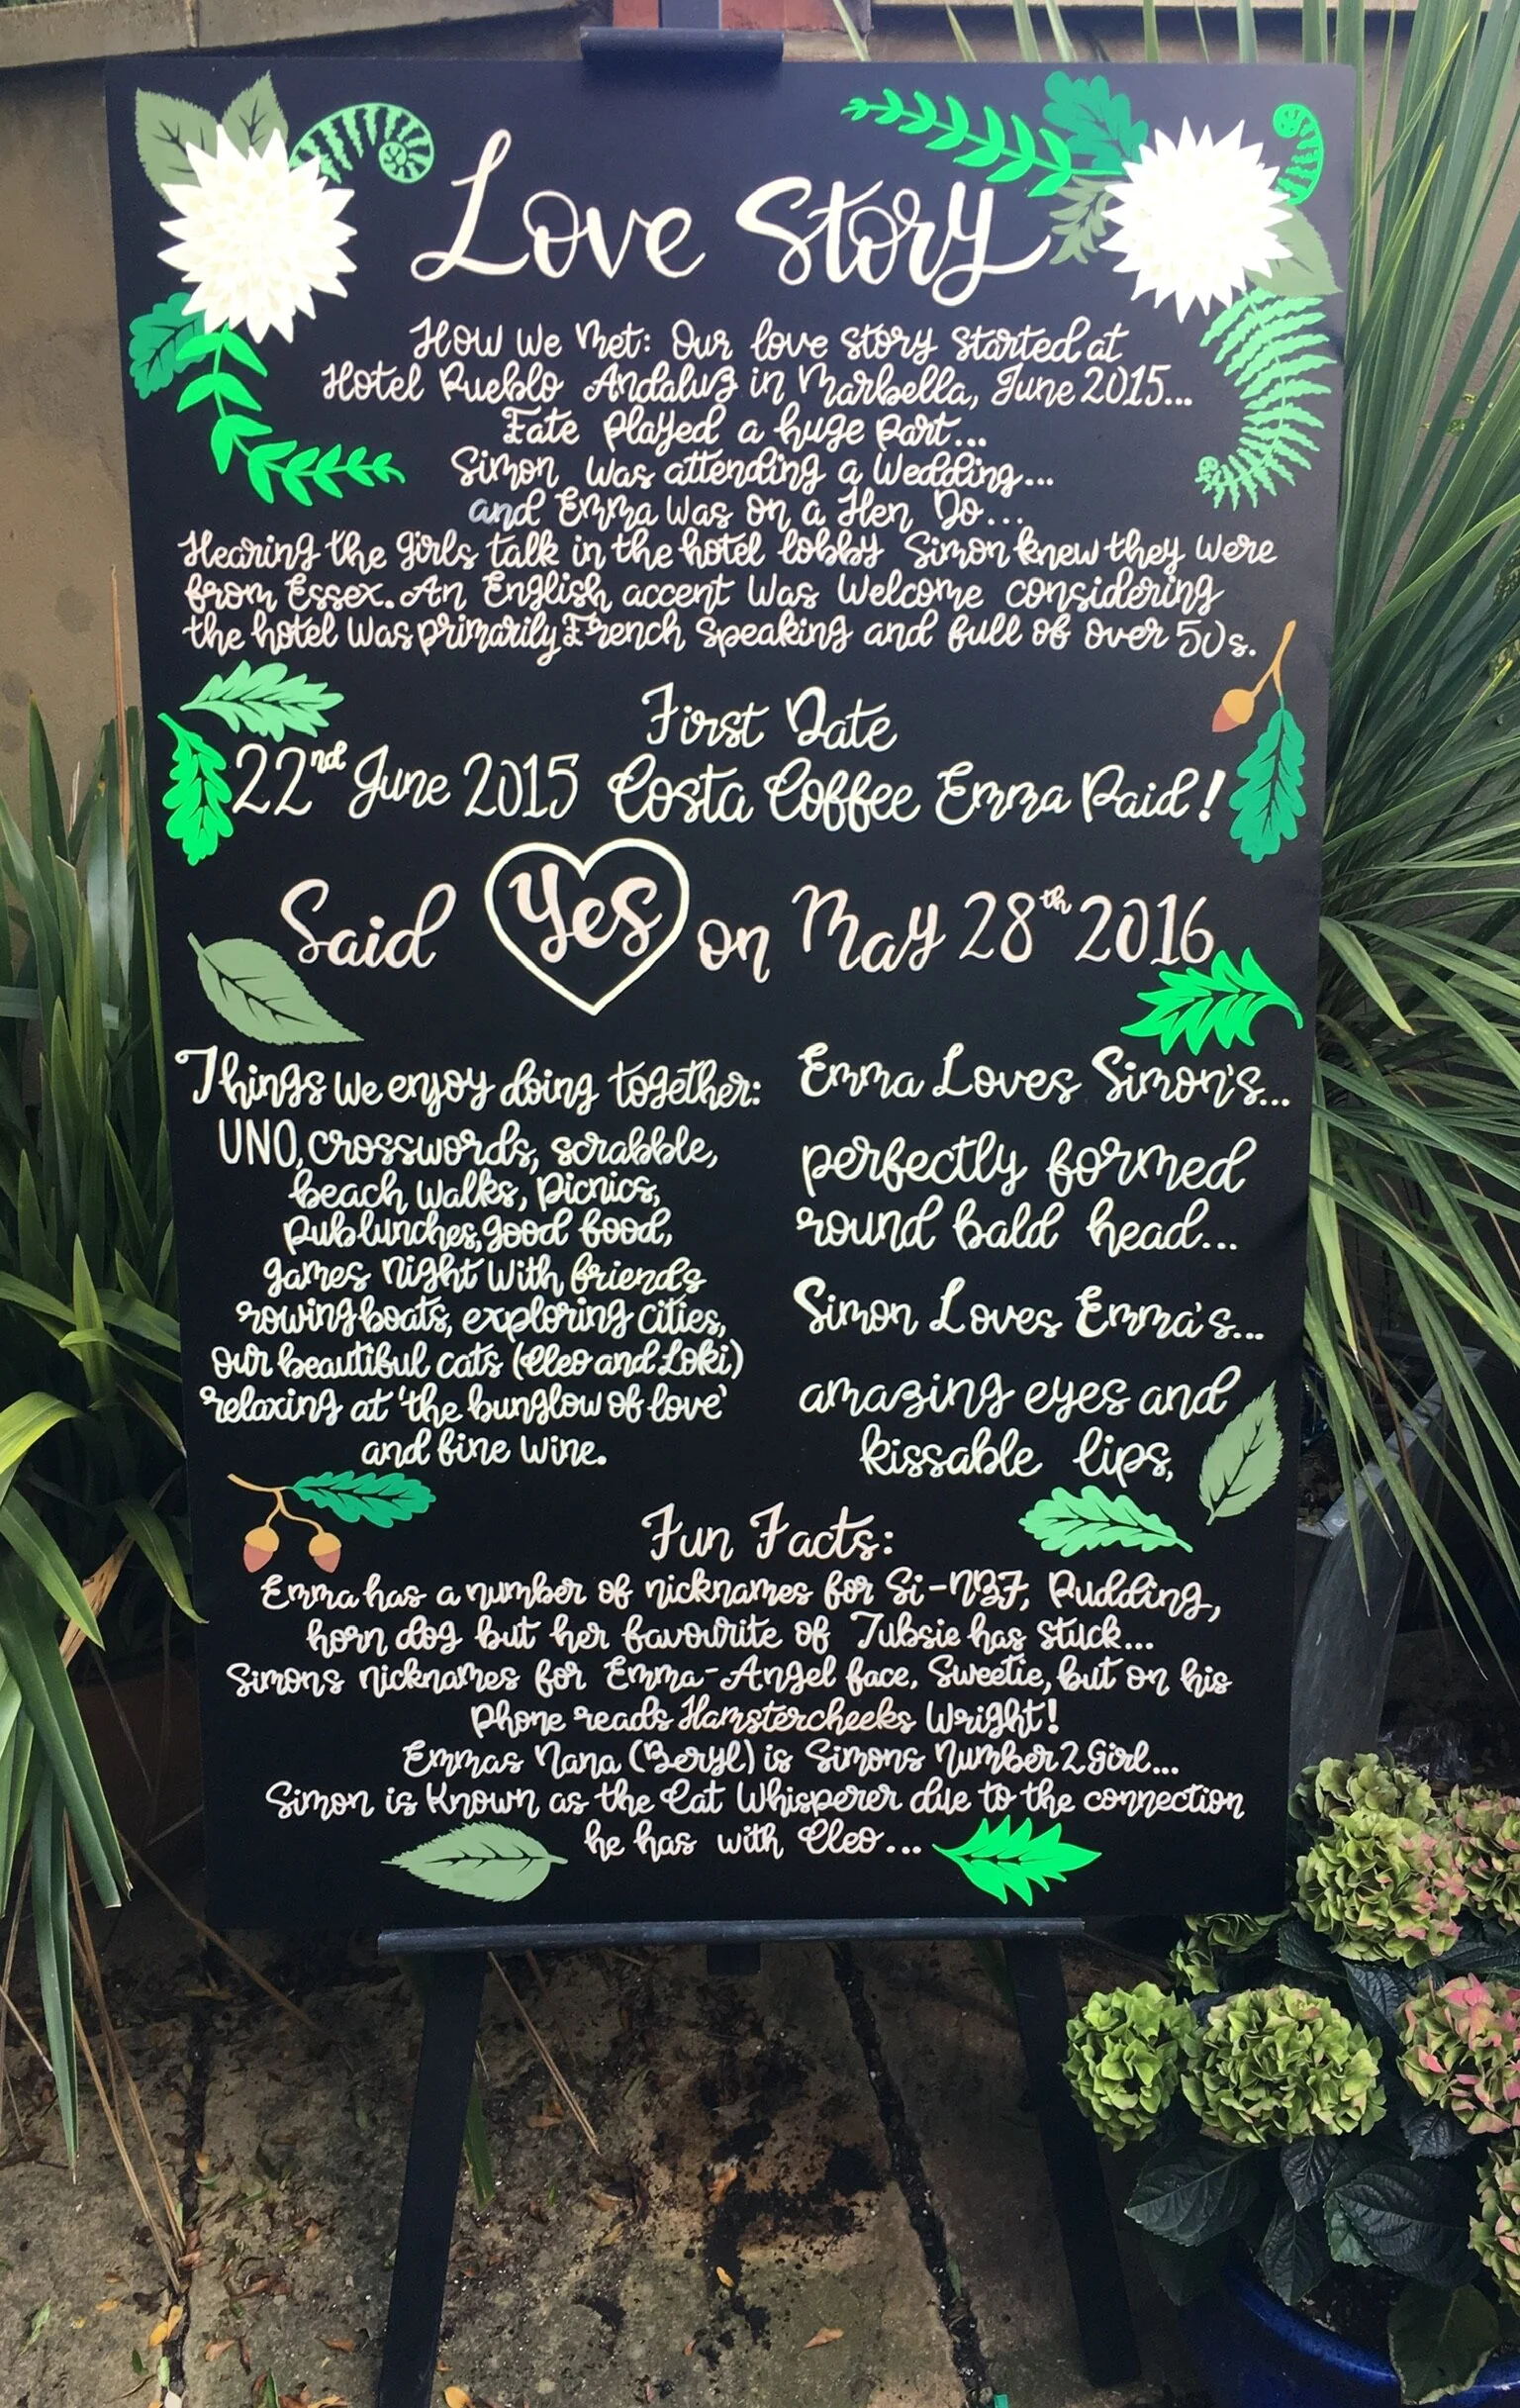 Love Story
How We Met: Our love story started at
Hotel Pueblo Andaluz in Marbella, June 2015...
Fate played a huge part...
Simon was attending a Wedding...
and Emma was on a Hen Do...
Hearing the girls talk in the hotel lobby Simon knew they were
from Essex. An English accent was welcome considering
the hotel was primarily French speaking and full of over 50s.
First Date
22nd June 2015 Costa Coffee Emma Paid!
Said Yes on May 28th 2016
Things we enjoy doing together:
UNO, crosswords, scrabble,
beach walks, picnics,
pub lunches, good food,
games night with friends
rowing boats, exploring cities,
our beautiful cats (Cleo and Loki)
relaxing at 'the bunglow of love'
and fine wine.
Emma Loves Simon's...
perfectly formed
round bald head...
Simon Loves Emma's...
amazing eyes and
kissable lips,
Fun Facts:
Emma has a number of nicknames for Si-NBF, Pudding,
horn dog but her favourite of Tubsie has stuck...
Simons nicknames for Emma-Angel face, Sweetie, but on his
phone reads Hamstercheeks Wright!
Emmas Nana (Beryl) is Simons Number 2 Girl...
Simon is known as the Cat Whisperer due to the connection
he has with Cleo...